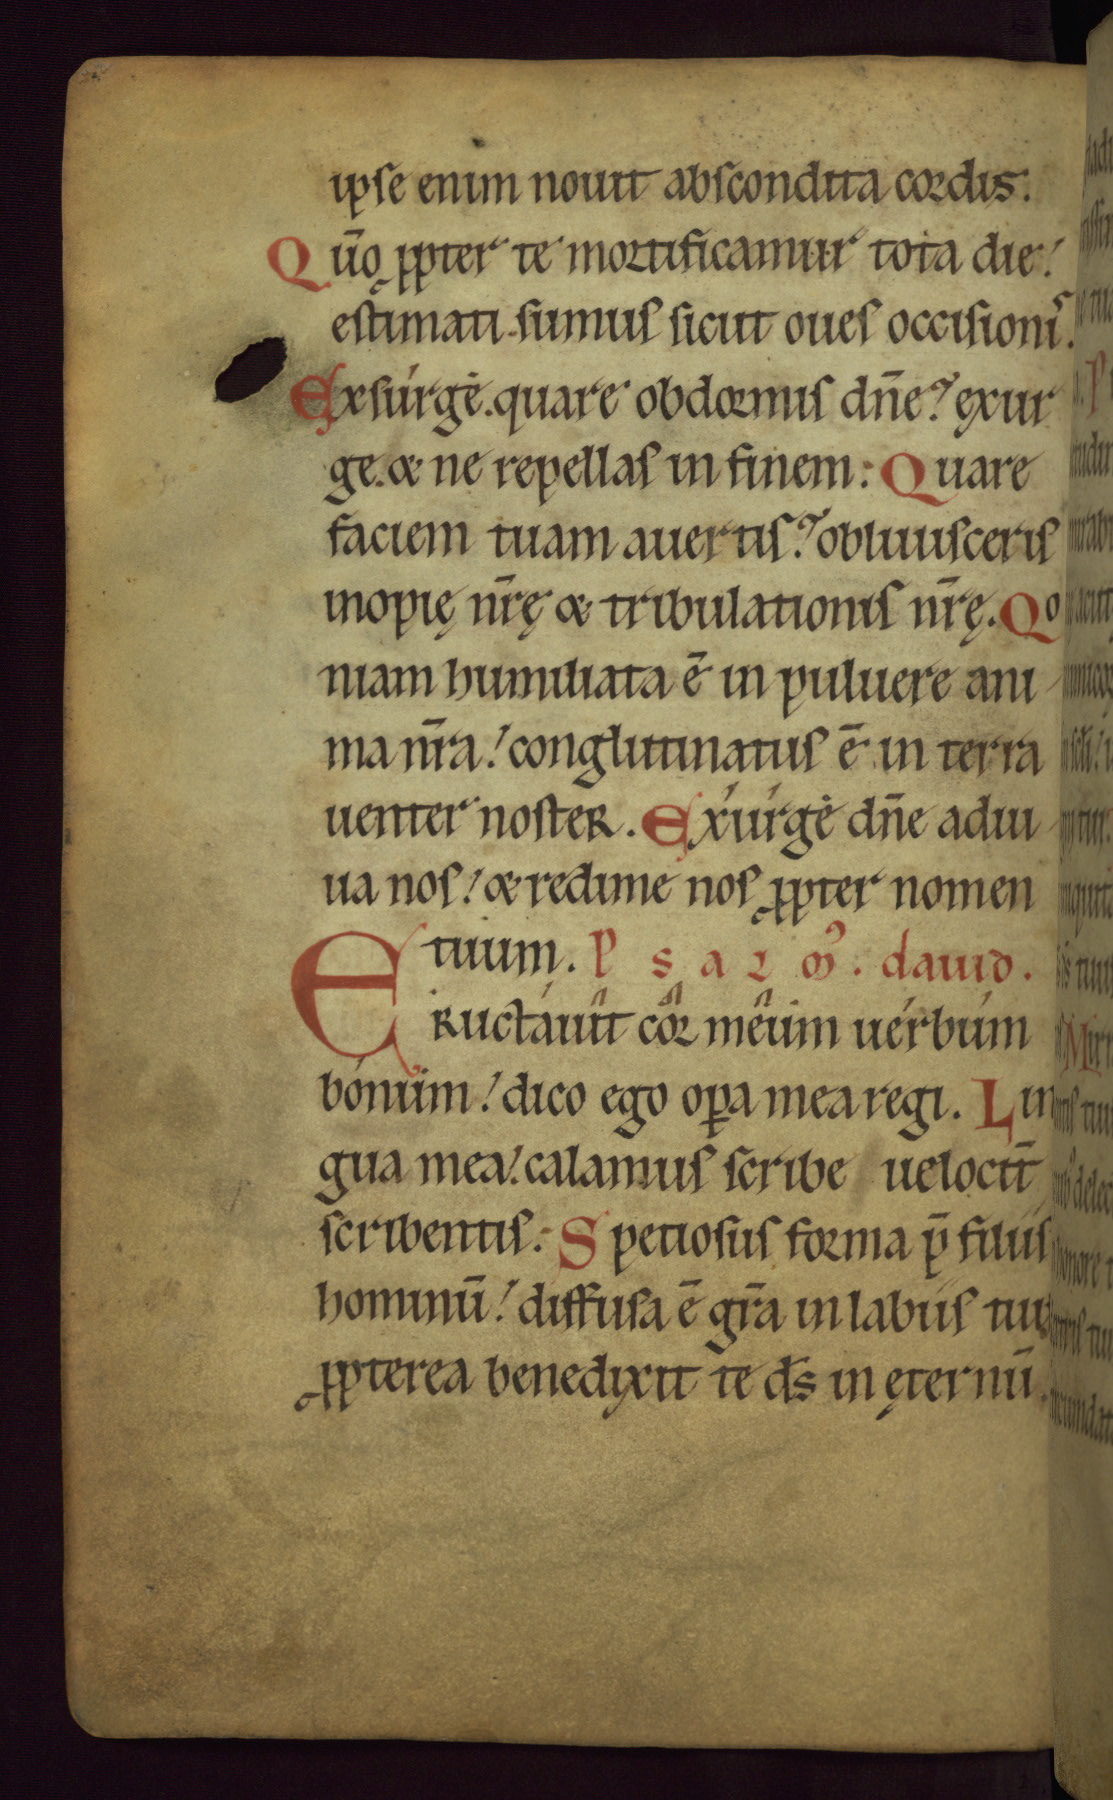 ipse enim nouit abscondita cordis.
Qūo ꝓpter te mortificamur tota die!
estimati sumus sicut oues occisionis.
Exsurge. quare obdormis dn̄e? exur
ge. & ne repellas in finem: Quare
faciem tuam auertis? obliuisceris
inopię nr̄ę & tribulationis nr̄ę. Qo
niam humiliata ē in puluere ani
ma nr̄a! conglutinatus ē in terra
uenter noster. Exurge dn̄e adiu
ua nos! & redime nos ꝓpter nomen
tuum. P s a l m᾽. dauid.
Eructauit cor meum uerbum
bonum! dico ego oꝑa mea regi. Lin
gua mea! calamus scribe uelocit̄
scribentis. Spetiosus forma p̄ filiis
hominū! diffusa ē gr̄a in labiis tuis
ꝓpterea benedixit te ds̄ in ęternū.